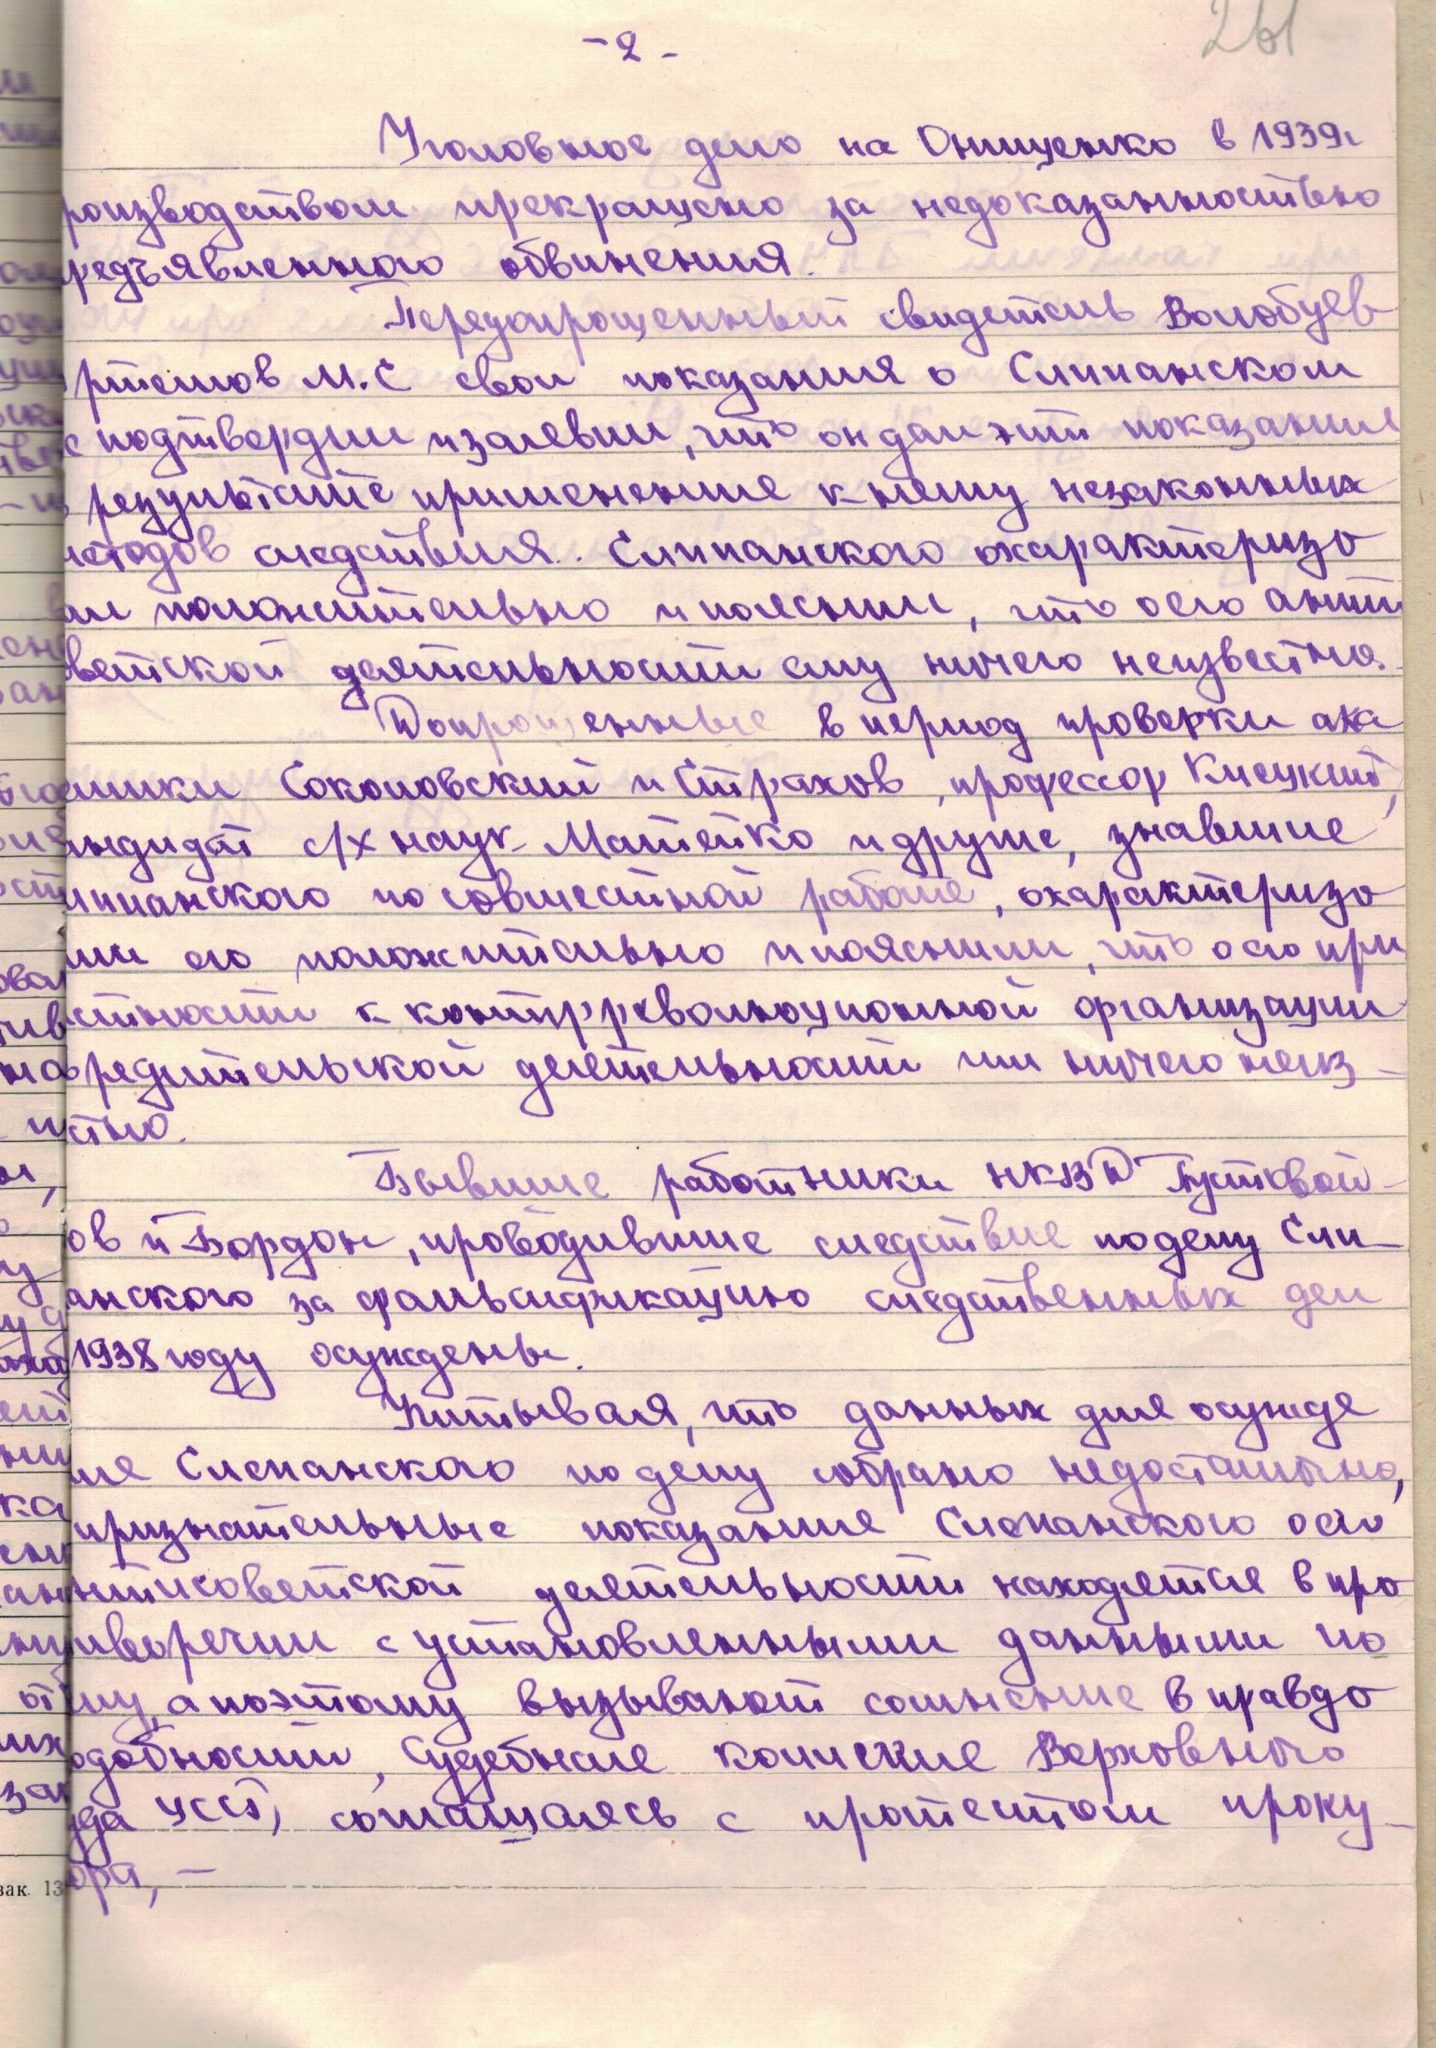 - 2 -
261
Уголовное дело на Онищенко в 1939г
роизводством прекращено за недоказанностью
редъявленного обвинения.
Передопрошенный свидетель Волобуев
ртемов М.С свои показания о Слипанском
е подтвердил и заявил, что он дал эти показания
результате применения к нему незаконных
етодов следствия. Слипанского охарактеризо
ал положительно и пояснил, что о его анти
ветской деятельности ему ничего неизвестно.
Допрошенные в период проверки ака
емики Соколовский и Страхов, профессор
андидат с/х наук Матейко и другие, знавшие
липанского по совместной работе, охарактеризо
али его положительно и пояснили, что о его при
астности к контрреволюционной организации
редительской деятельности им ничего неиз-
естно.
Бывшие работники НКВД Пустовой-
ов и Бордон, проводившие следствие по делу Сли-
анского за фальсификацию следственных дел
1938 году осуждены.
Учитывая, что данных для осужде
ия Слепанского по делу собрано недостаточно,
признательные показания Слепанского о его
антисоветской деятельности находятся в про
иворечии с установленными данными по
елу, а поэтому вызывают сомнение в правдо
одобности, Судебная коллегия Верховного
уда УССР, соглашаясь с протестом проку-
ора, –
зак. 13